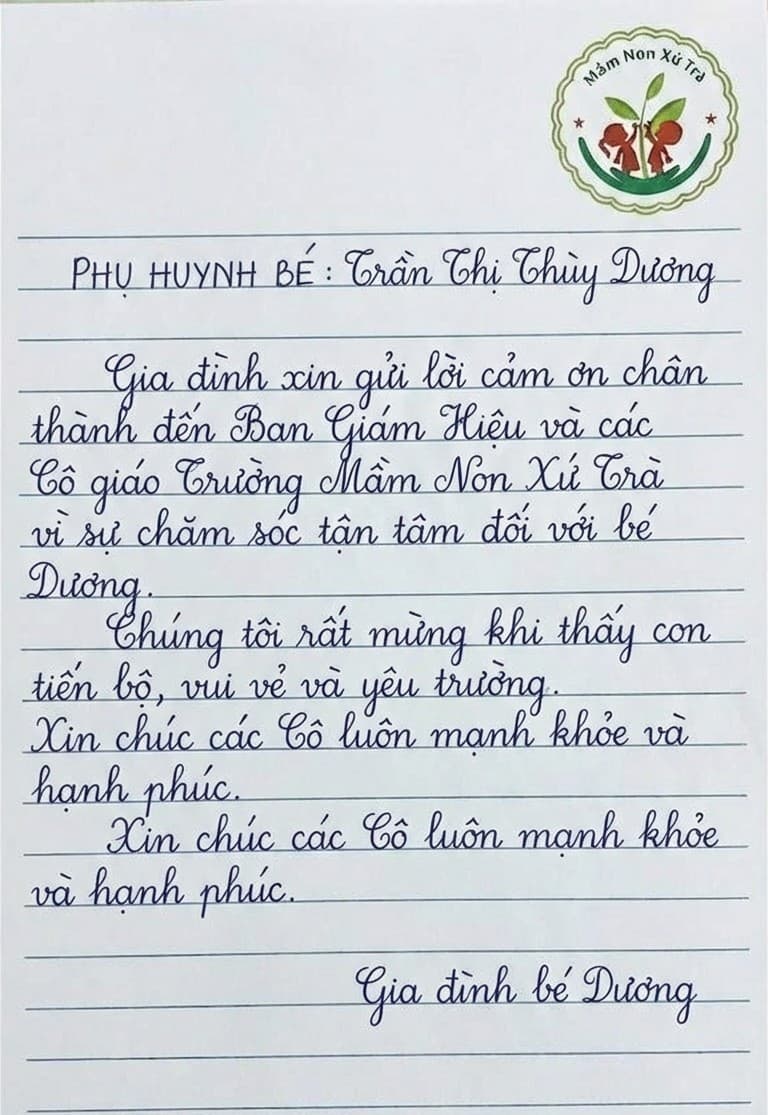 Mầm Non Xứ Trà
PHỤ HUYNH BÉ: Trần Thị Thùy Dương
Gia đình xin gửi lời cảm ơn chân
thành đến Ban Giám Hiệu và các
Cô giáo Trường Mầm Non Xứ Trà
vì sự chăm sóc tận tâm đối với bé
Dương.
Chúng tôi rất mừng khi thấy con
tiến bộ, vui vẻ và yêu trường.
Xin chúc các Cô luôn mạnh khỏe và
hạnh phúc.
Xin chúc các Cô luôn mạnh khỏe
và hạnh phúc.
Gia đình bé Dương